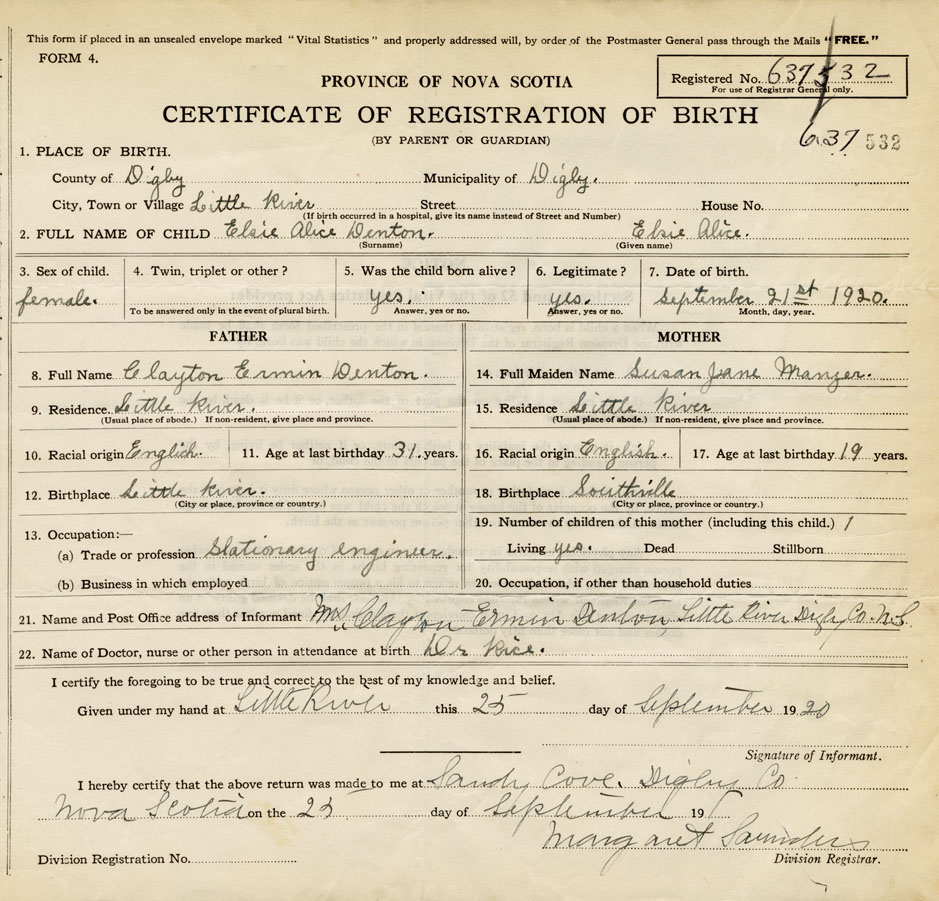 This form if placed in an unsealed envelope marked "Vital Statistics" and properly addressed will, by order of the Postmaster General pass through the Mails "FREE."
FORM 4.
PROVINCE OF NOVA SCOTIA
Registered No. 637532
For use of Registrar General only.
CERTIFICATE OF REGISTRATION OF BIRTH
(BY PARENT OR GUARDIAN)
637 532
1. PLACE OF BIRTH.
County of Digby Municipality of Digby.
City, Town or Village Little River Street House No.
(If birth occurred in a hospital, give its name instead of Street and Number)
2. FULL NAME OF CHILD Elsie Alice Denton. Elsie Alice.
(Surname) (Given name)
3. Sex of child. 4. Twin, triplet or other? 5. Was the child born alive? 6. Legitimate? 7. Date of birth.
female. yes. yes. September 21st 1920.
To be answered only in the event of plural birth. Answer, yes or no. Answer, yes or no. Month, day, year.
FATHER MOTHER
8. Full Name Clayton Ermin Denton. 14. Full Maiden Name Susan Jane Manzer.
9. Residence. Little River. 15. Residence Little River
(Usual place of abode.) If non-resident, give place and province. (Usual place of abode.) If non-resident, give place and province.
10. Racial origin English. 11. Age at last birthday 31. years. 16. Racial origin English. 17. Age at last birthday 19 years.
12. Birthplace Little River. 18. Birthplace Southville
(City or place, province or country.) (City or place, province or country.)
13. Occupation:— 19. Number of children of this mother (including this child.) 1
(a) Trade or profession Stationary engineer. Living yes. Dead Stillborn
(b) Business in which employed 20. Occupation, if other than household duties
21. Name and Post Office address of Informant Mrs Clayton Ermin Denton Little River Digby Co. N.S.
22. Name of Doctor, nurse or other person in attendance at birth Dr Rice.
I certify the foregoing to be true and correct to the best of my knowledge and belief.
Given under my hand at Little River this 25 day of September 1920
Signature of Informant.
I hereby certify that the above return was made to me at Sandy Cove. Digby Co
Nova Scotia on the 25 day of September 19
Margaret Saunders
Division Registration No. Division Registrar.